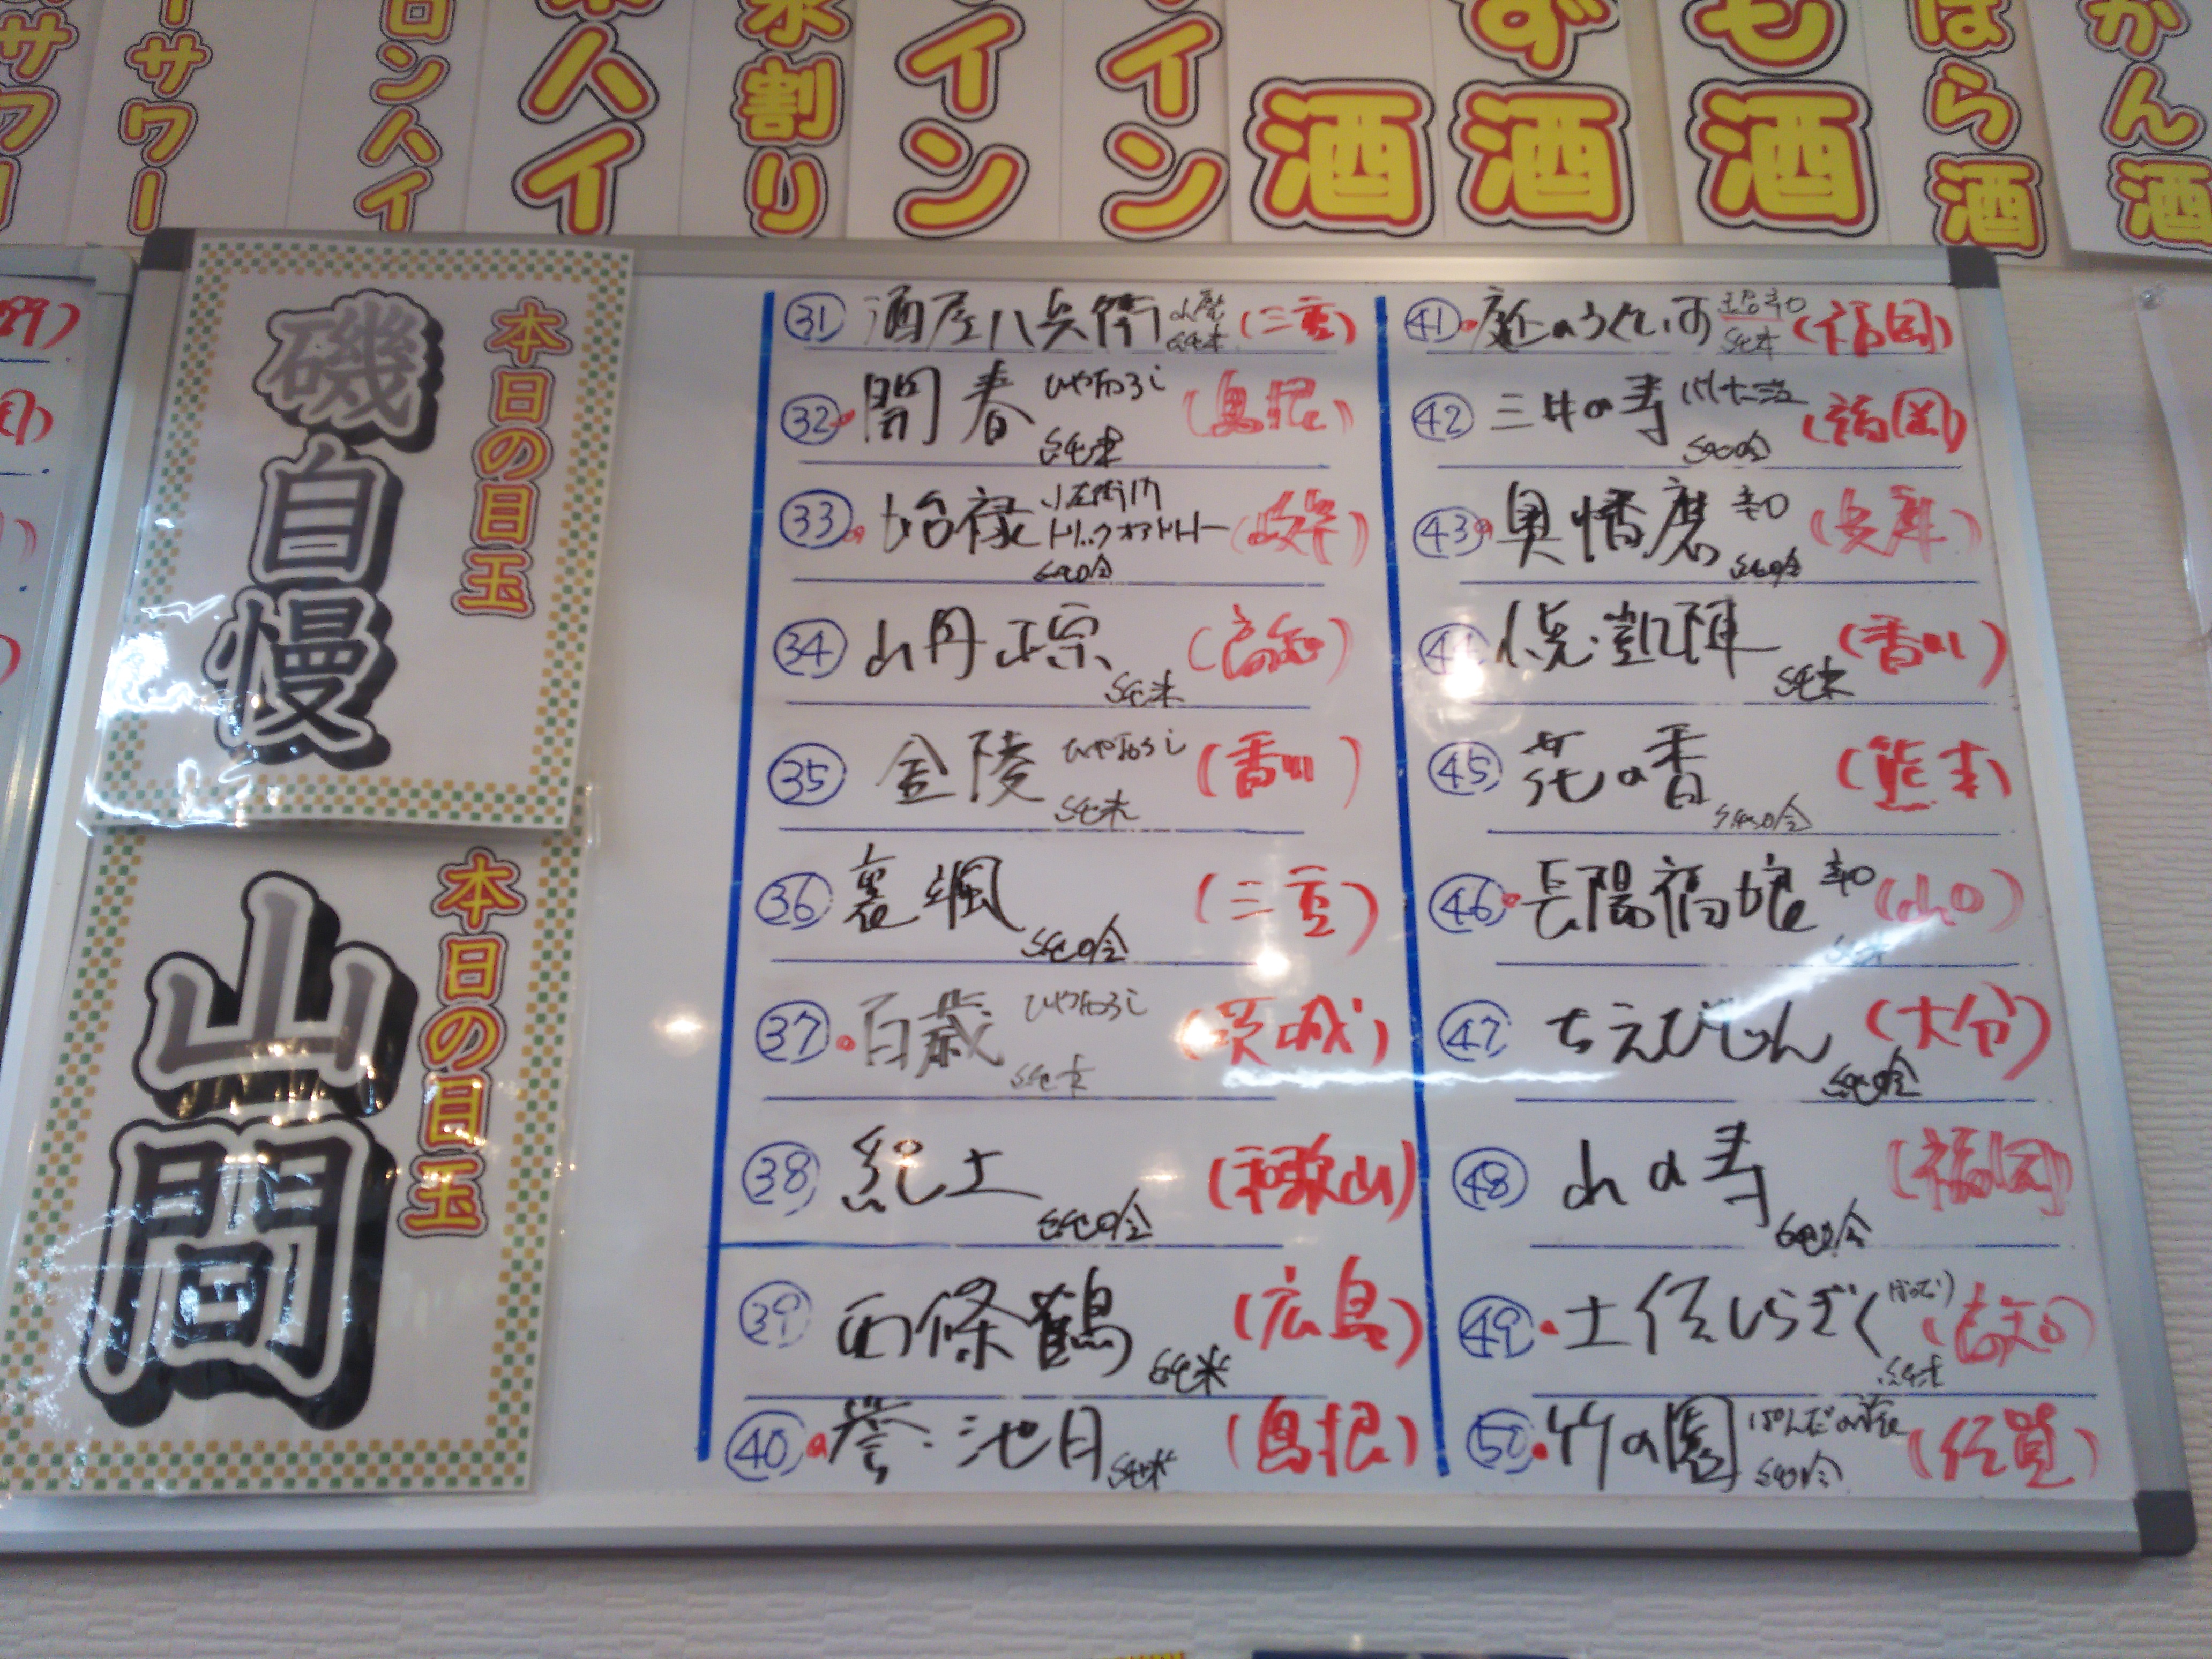 サワー
ーサワー
ロンハイ
ハイ
水割り
イン
イン
酒
ず酒
も酒
ばら酒
かん酒
本日の目玉
磯自慢
本日の目玉
山間
31 酒屋八兵衛 山廃 純米 (三重)
32 開春 ひやおろし 純米 (島根)
33 始禄 小左衛門 トリックオアトリート 純吟 (岐阜)
34 山丹正宗 純米 (高知)
35 金陵 ひやおろし 純米 (香川)
36 裏颯 純吟 (三重)
37 百歳 ひやおろし 純米 (茨城)
38 紀土 純吟 (和歌山)
39 西條鶴 純米 (広島)
40 誉池月 純米 (島根)
41 庭のうぐいす 超辛口 純米 (福岡)
42 三井の寿 純吟 (福岡)
43 奥播磨 辛口 純吟 (兵庫)
44 悦凱陣 純米 (香川)
45 花の香 純吟 (熊本)
46 長陽福娘 辛口 純米 (山口)
47 ちえびじん 純吟 (大分)
48 山の寿 純吟 (福岡)
49 土佐しらぎく 純米 (高知)
50 竹の園 ぱんだの 純吟 (佐賀)